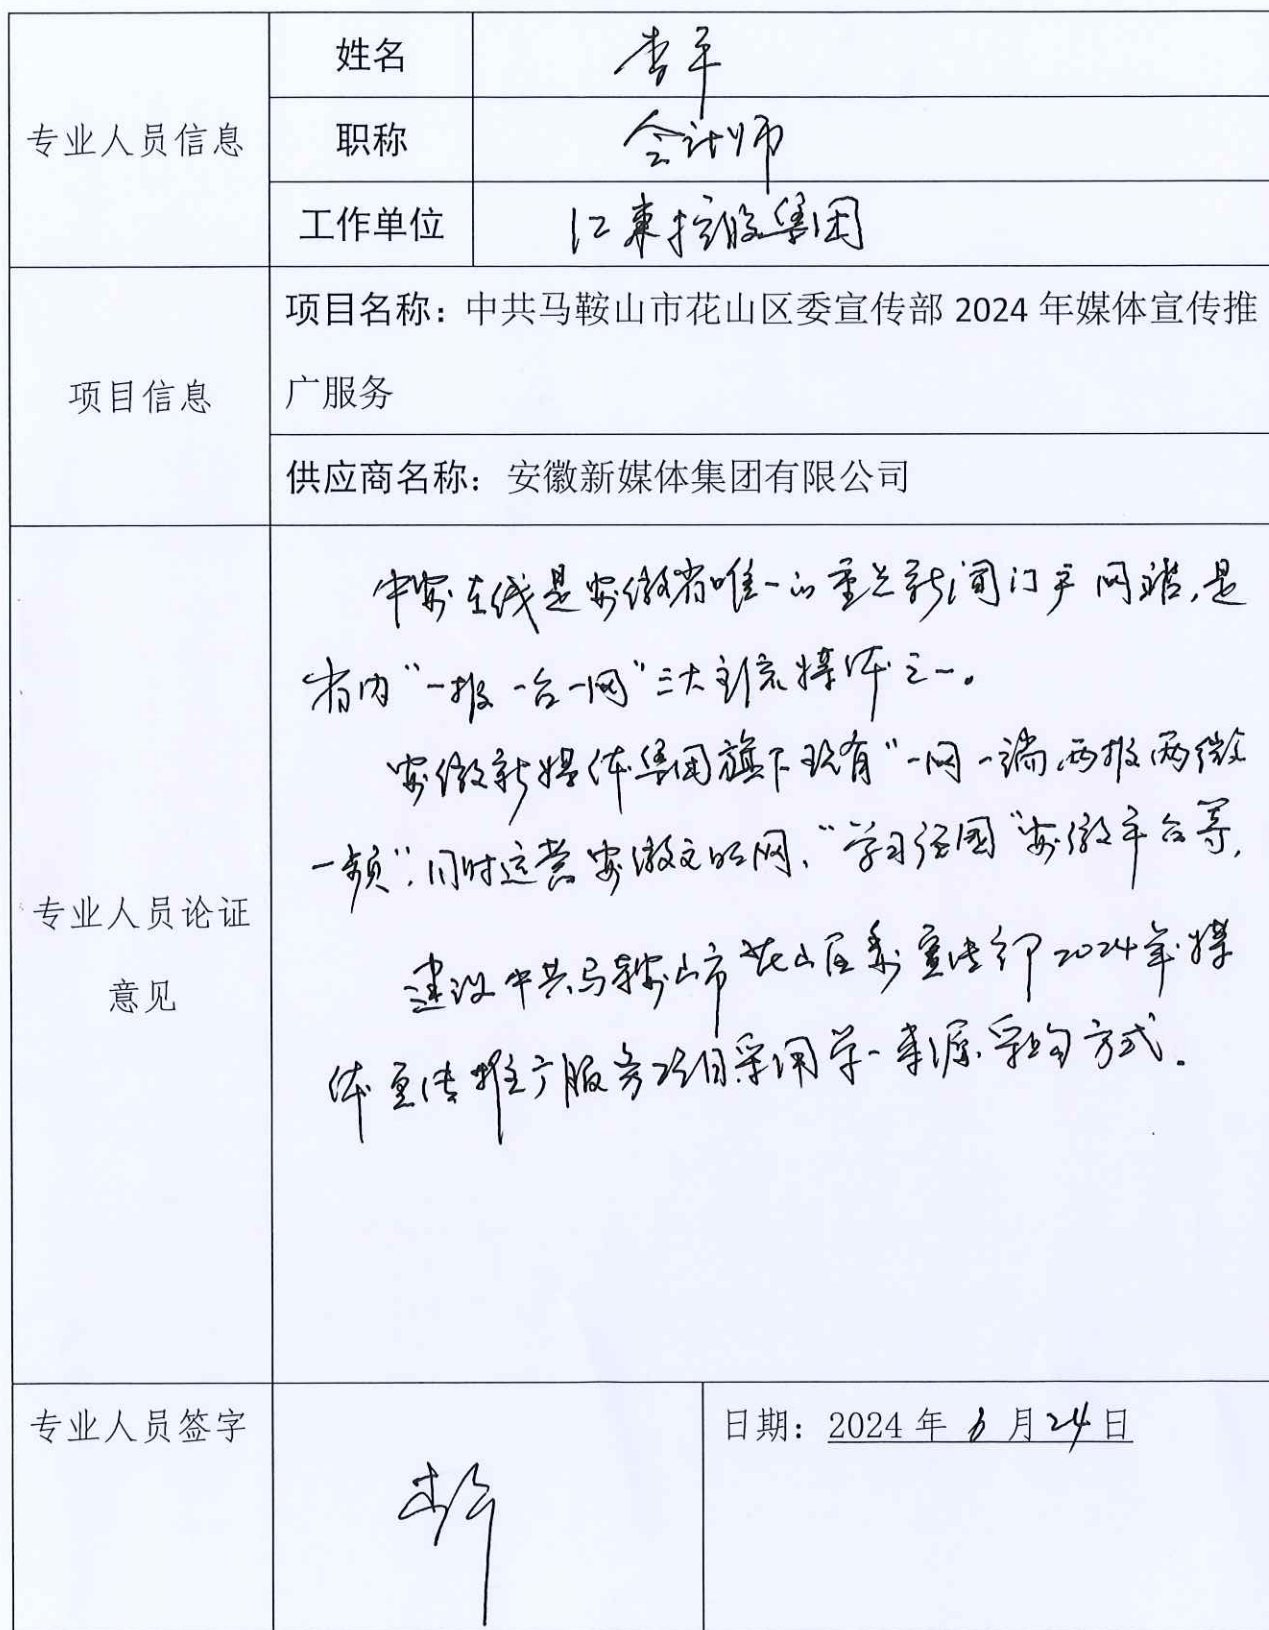 专业人员信息
姓名
李平
职称
会计师
工作单位
江東控股集团
项目信息
项目名称：中共马鞍山市花山区委宣传部 2024 年媒体宣传推
广服务
供应商名称：安徽新媒体集团有限公司
专业人员论证
意见
中安在线是安徽省唯一的重点新闻门户网站，是
省内“一报一台一网”三大主流媒体之一。
安徽新媒体集团旗下现有“一网一端两报两微
一频”，同时运营安徽文明网、“学习强国”安徽平台等，
建议中共马鞍山市花山区委宣传部2024年媒
体宣传推广服务项目采用单一来源采购方式。
专业人员签字
日期：2024 年 6 月 24 日